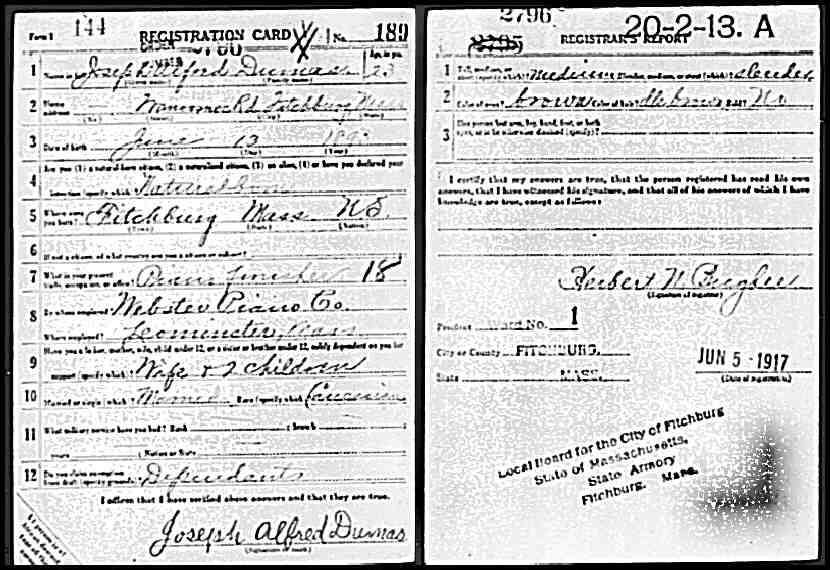 Form 1 144 REGISTRATION CARD No. 189
ORDER
NUMBER
1 Name in full Joseph Alford Dumas
(Given name) (Family name)
Age, in yrs.
2 Home address Fitchburg Mass
(No.) (Street) (City) (State)
3 Date of birth June 13
(Month) (Day) (Year)
4 Are you (1) a natural-born citizen, (2) a naturalized citizen, (3) an alien, (4) or have you declared your
intention (specify which)? Natural born
5 Where were you born? Fitchburg Mass U.S.
(Town) (State) (Nation)
6 If not a citizen, of what country are you a citizen or subject?
7 What is your present trade, occupation, or office? Piano finisher 18
8 By whom employed? Webster Piano Co.
Where employed? Leominster, Mass
9 Have you a father, mother, wife, child under 12, or a sister or brother under 12, solely dependent on you for
support (specify which)? Wife & 2 children
10 Married or single (which)? Married Race (specify which)? Caucasian
11 What military service have you had? Rank ; branch ;
years ; Nation or State
12 Do you claim exemption from draft (specify grounds)? Dependants
I affirm that I have verified above answers and that they are true.
Joseph Alfred Dumas
(Signature or mark)
2796 20-2-13. A
2795 REGISTRAR'S REPORT
1 Tall, medium, or short (specify which)? medium Slender, medium, or stout (which)? slender
2 Color of eyes? brown Color of hair? Bald? No
3 Has person lost arm, leg, hand, foot, or both eyes, or is he otherwise disabled (specify)?
I certify that my answers are true, that the person registered has read his own
answers, that I have witnessed his signature, and that all of his answers of which I have
knowledge are true, except as follows:
Herbert W. Bugbee
(Signature of registrar)
Precinct Ward No. 1
City or County FITCHBURG,
State MASS.
JUN 5 - 1917
(Date of registration)
Local Board for the City of Fitchburg
State of Massachusetts,
State Armory
Fitchburg, Mass.